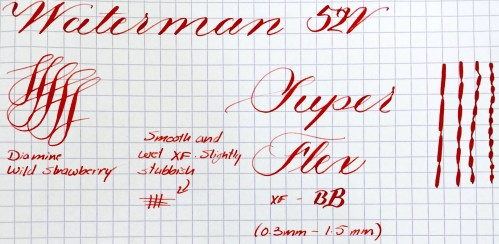 Waterman 52V
Super
Flex
XF - BB
(0.3mm - 1.5mm)
Smooth and
wet XF. Slightly
stubbish
Diamine
Wild Strawberry